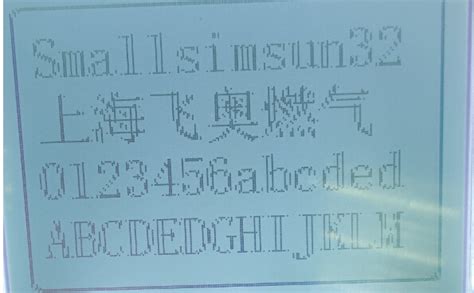 Smallsimsun32
上海飞奥燃气
0123456abcded
ABCDEDGHIJKLM